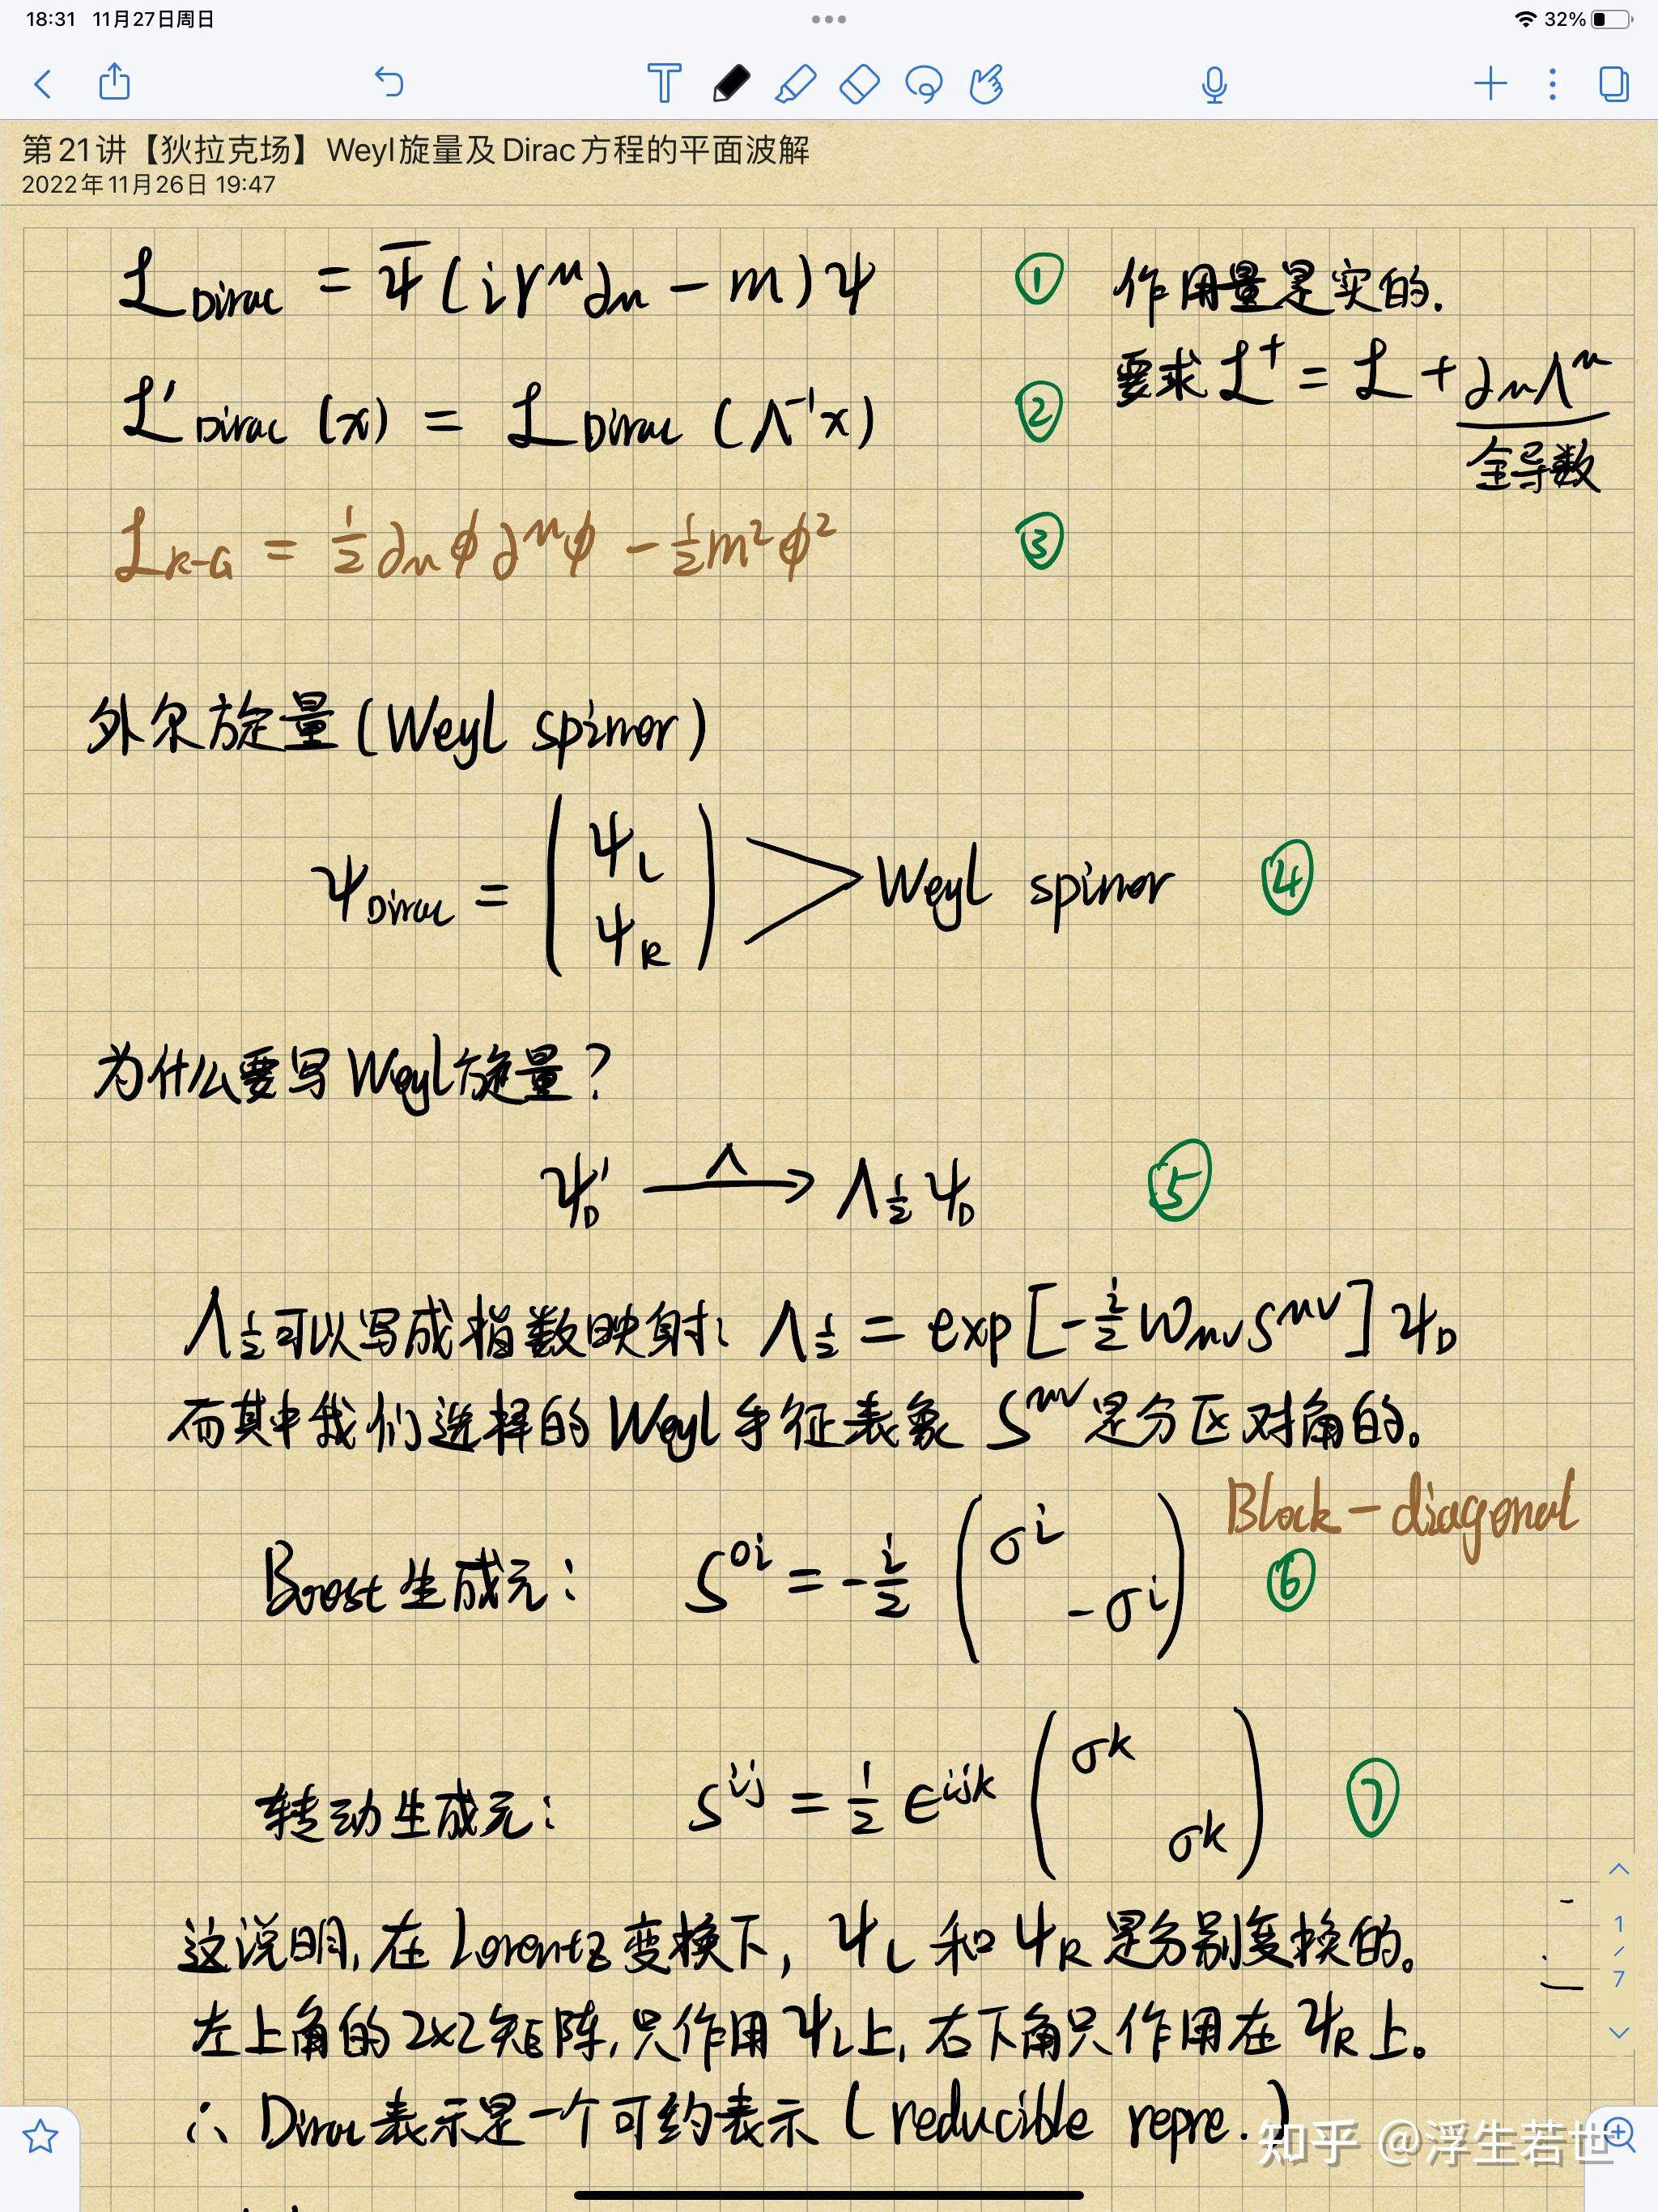 18:31 11月27日周日
32%
第21讲【狄拉克场】Weyl旋量及Dirac方程的平面波解
2022年11月26日 19:47
ℒ_Dirac = ψ̄(iγ^μ∂_μ − m)ψ ① 作用量是实的.
要求 ℒ^† = ℒ + ∂_μΛ^μ
ℒ'_Dirac (x) = ℒ_Dirac (Λ^{-1}x) ②
全导数
ℒ_{K-G} = 1/2 ∂_μ φ ∂^μ φ − 1/2 m² φ² ③
外尔旋量(Weyl spinor)
ψ_Dirac = ( ψ_L
ψ_R ) > Weyl spinor ④
为什么要写Weyl旋量?
ψ'_D —Λ→ Λ_{1/2} ψ_D ⑤
Λ_{1/2}可以写成指数映射: Λ_{1/2} = exp[−i/2 ω_{μν} S^{μν}] ψ_D
而其中我们选择的Weyl手征表象 S^{μν} 是分区对角的。
Block-diagonal
Boost生成元: S^{0i} = −i/2 ( σ^i
−σ^i ) ⑥
转动生成元: S^{ij} = 1/2 ϵ^{ijk} ( σ^k
σ^k ) ⑦
这说明,在Lorentz变换下, ψ_L 和 ψ_R 是分别变换的。
左上角的2x2矩阵,只作用ψ_L上,右下角只作用在ψ_R上。
∴ Dirac表示是一个可约表示 (reducible repre.)
1/7
知乎 @浮生若世